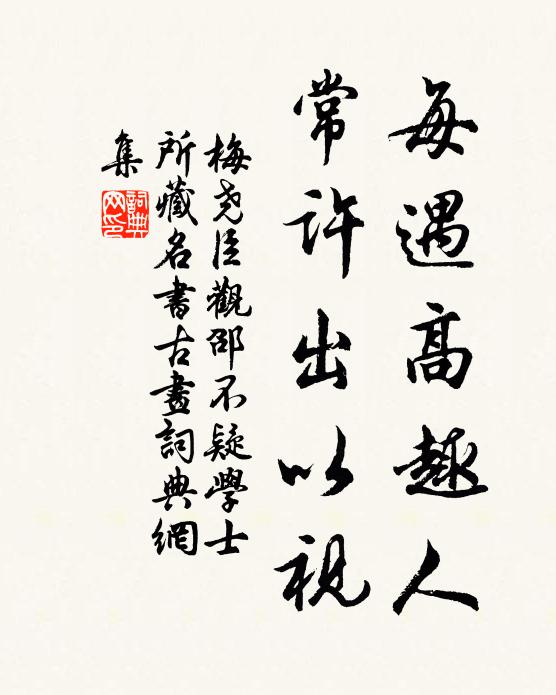 每遇高趣人
常許出以視
梅堯臣觀邵不疑學士
所藏名書古畫詞典網
集
詞典网印